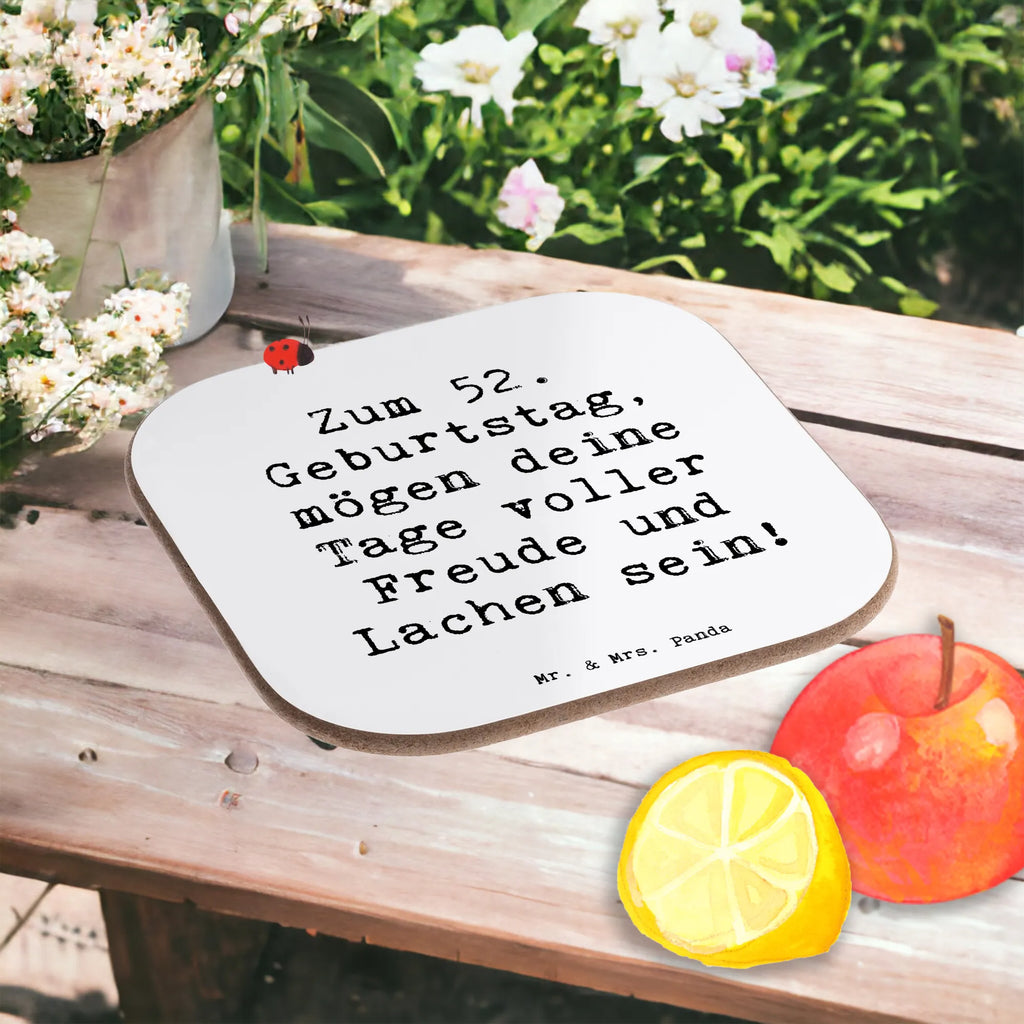 Zum 52.
Geburtstag,
mögen deine
Tage voller
Freude und
Lachen sein!
Mr. & Mrs. Panda